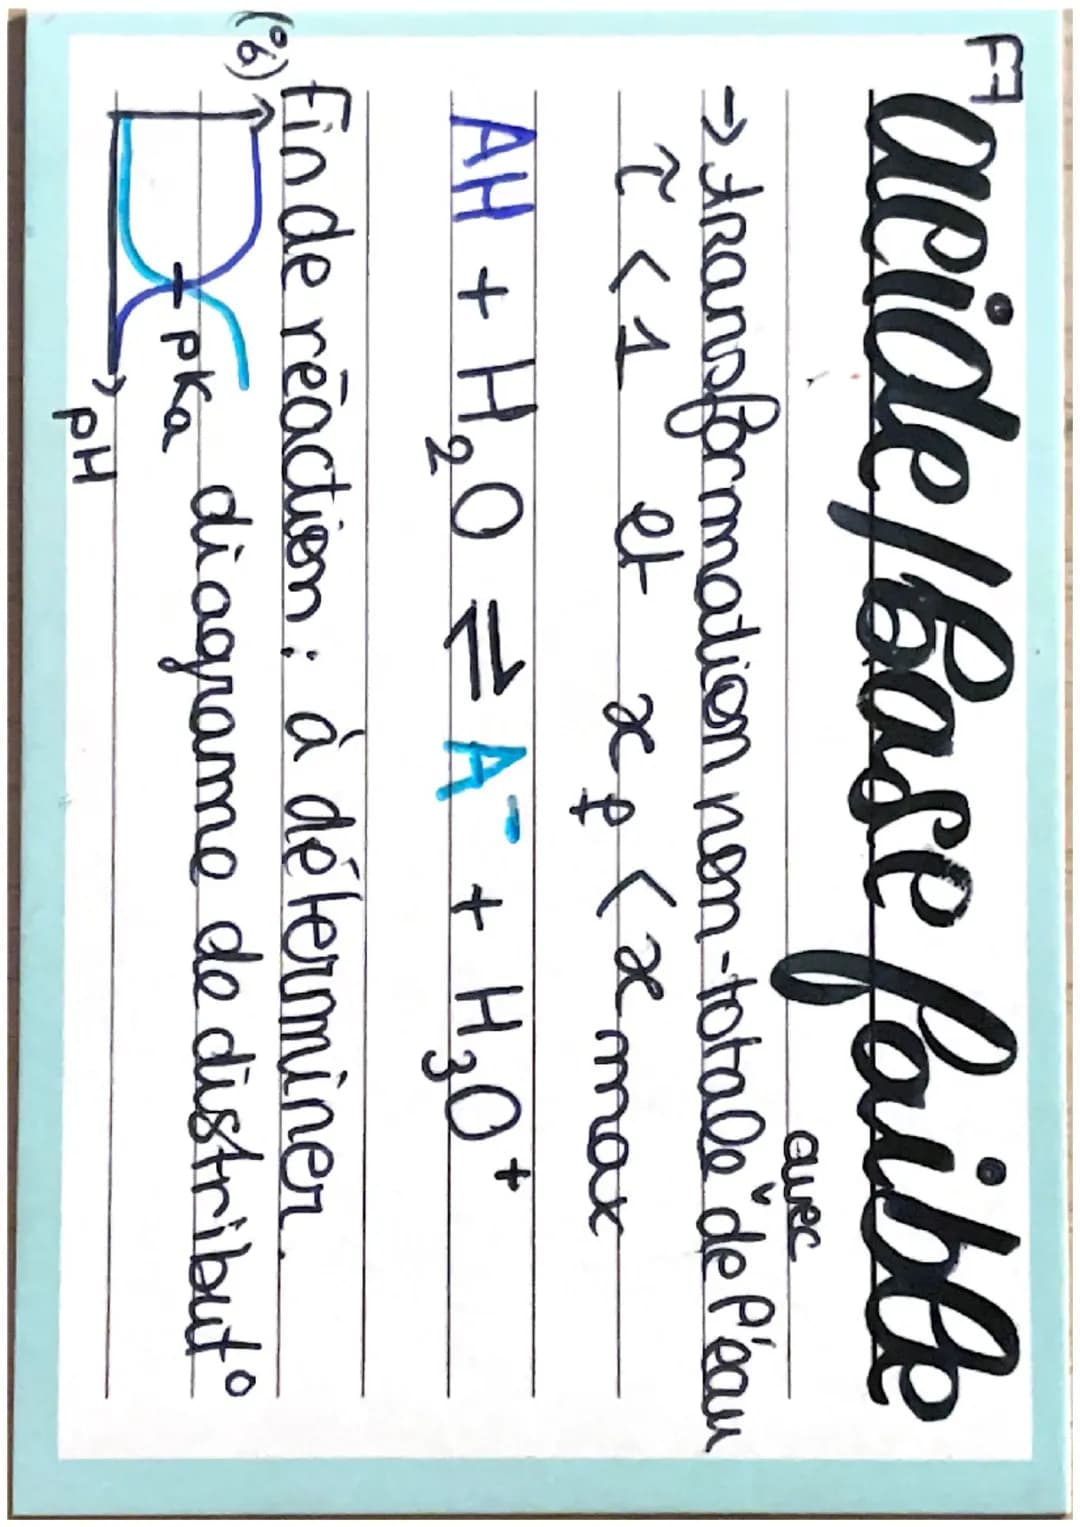 F7
acide/Base faible
avec
→ transformation non-totale ˇ de l'eau
τ < 1 et x_f < x max
AH + H₂O ⇌ A⁻ + H₃O⁺
Fin de réaction : à déterminer.
(%)
pKa
diagramme de distribut°
pH